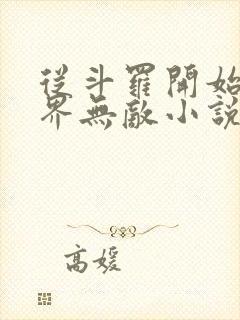 從斗羅開始
界無敵小說
高媛